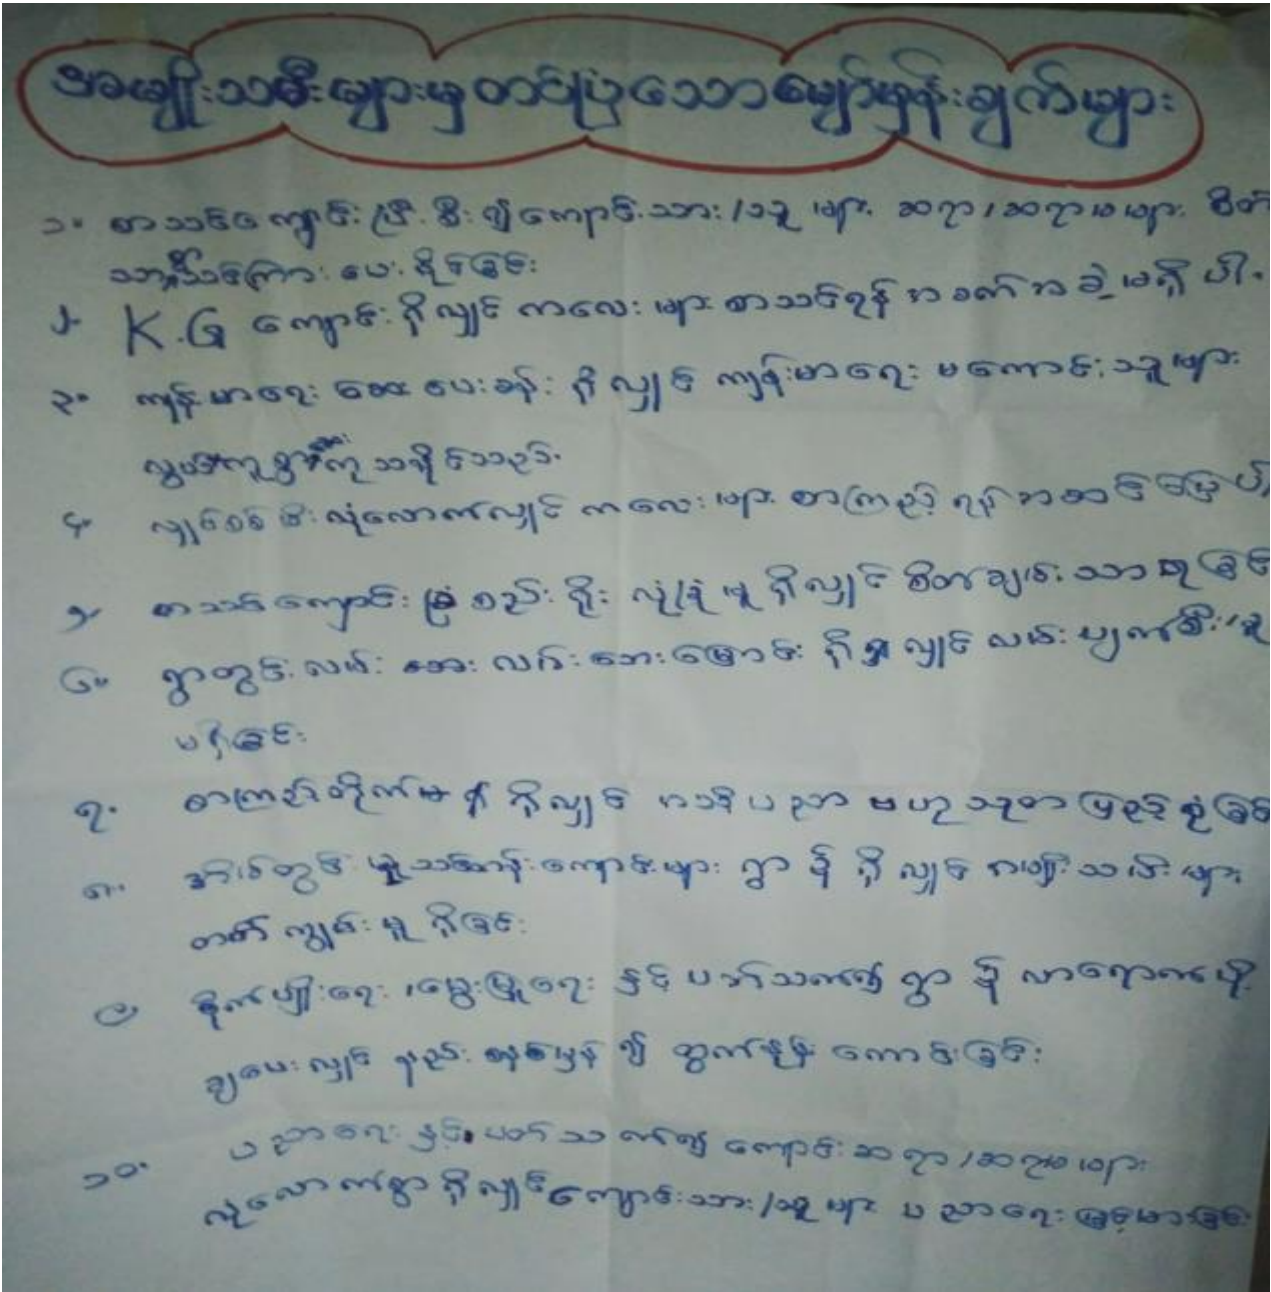 အမျိုးသမီးများမှတင်ပြသောမျှော်မှန်းချက်များ
၁။ စာသင်ကျောင်းပြီးစီး၍ကျောင်းသား/သူများ ဆရာ/ဆရာမများ စိတ်
ပေးနိုင်ခြင်း
၂။ K.G ကျောင်းရှိလျှင် ကလေးများ စာသင်ရန် အခက်အခဲမရှိပါ။
၃။ ကျန်းမာရေး ဆေးပေးခန်းရှိလျှင် ကျန်းမာရေး မကောင်းသူများ
သနိုင်သည်။
၄။ လျှပ်စစ်မီးလုံလောက်လျှင် ကလေးများ စာကြည့်ရန် အဆင်ပြေပါ
၅။ စာသင်ကျောင်း ခြံစည်းရိုး လုံခြုံမှုရှိလျှင် စိတ်ချမ်းသာရခြင်း
၆။ ရွာတွင်းလမ်းဘေး လမ်းဘေးမြောင်းရှိလျှင် လမ်းပျက်စီးမှု
မရှိခြင်း
၇။ စာကြည့်တိုက်မှန်ရှိလျှင် အသိပညာ ဗဟုသုတ ပြည့်စုံခြင်း
၈။ အိမ်တွင်းမှုသင်တန်းကျောင်းများ ရွာ၌ရှိလျှင် အမျိုးသမီးများ
တတ်ကျွမ်းမှုရှိခြင်း
၉။ စိုက်ပျိုးရေး/မွေးမြူရေးနှင့်ပတ်သက်၍ ရွာ၌ လာရောက်ပို့
ချပေးလျှင် နည်းစနစ်မှန်၍ ထွက်နှုန်းကောင်းခြင်း
၁၀။ ပညာရေးနှင့်ပတ်သက်၍ ကျောင်းဆရာ/ဆရာမများ
လုံလောက်စွာရှိလျှင်ကျောင်းသား/သူများ ပညာရေးမြင့်မားခြင်း